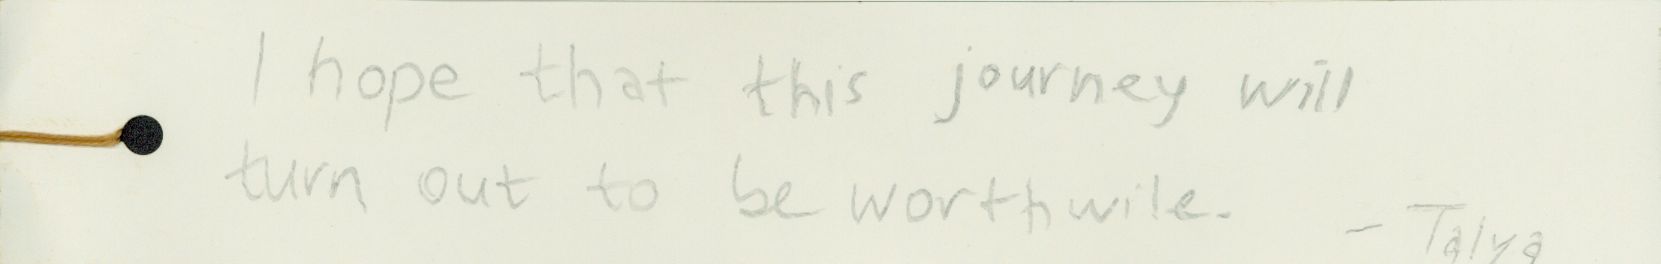 I hope that this journey will
turn out to be worthwile.
- Talya